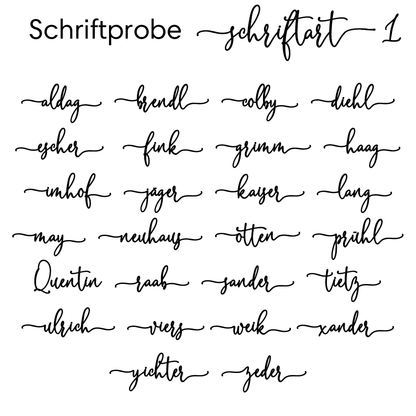 Schriftprobe schriftart 1
aldag brendl colby diehl
escher fink grimm haag
imhof jager kayser lang
may neuhaus otten prühl
Quentin raab sander tietz
ulrich viers weik xander
yichter zeder